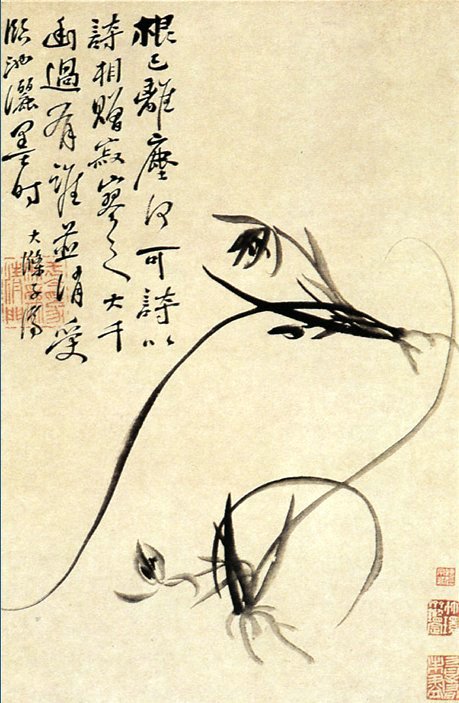 根已離塵何可詩以
詩相贈寂寥之大千
幽過有誰並消受
臨池灑墨時
大滌子濟